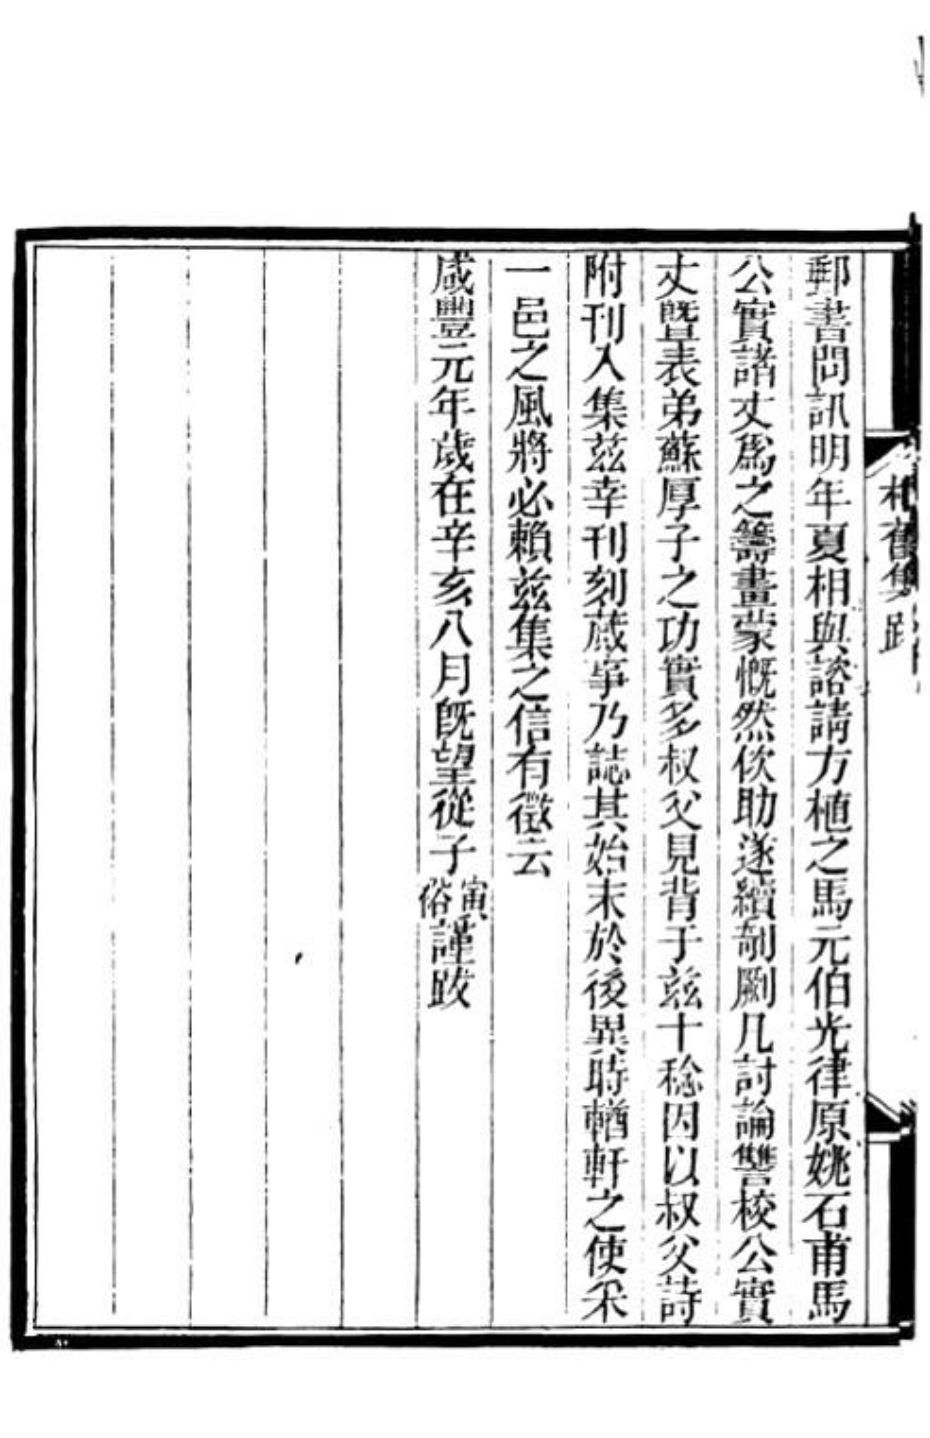 桐舊集 跋
郵書問訊明年夏相與諮請方植之馬元伯光律原姚石甫馬
公實諸丈爲之籌畫蒙慨然佽助遂續剞劂几討論讐校公實
丈曁表弟蘇厚子之功實多叔父見背于兹十稔因以叔父詩
附刊入集兹幸刊刻蕆事乃誌其始末於後異時輶軒之使采
一邑之風將必賴兹集之信有徵云
咸豐元年歲在辛亥八月旣望從子寅俗謹跋